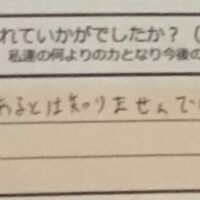 れていかがでしたか？（
私達の何よりの力となり今後の
あるとは知りませんで